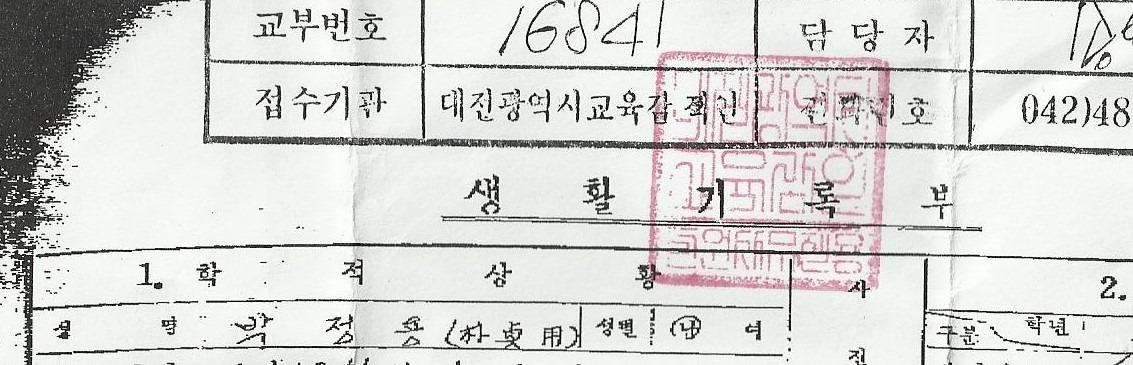 교부번호 16841 담당자
접수기관 대전광역시교육감 직인 전화번호 042)48
생활기록부
1. 학적상황 사 2.
성명 박정용(朴貞用) 성별 남 여 구분 학년
진